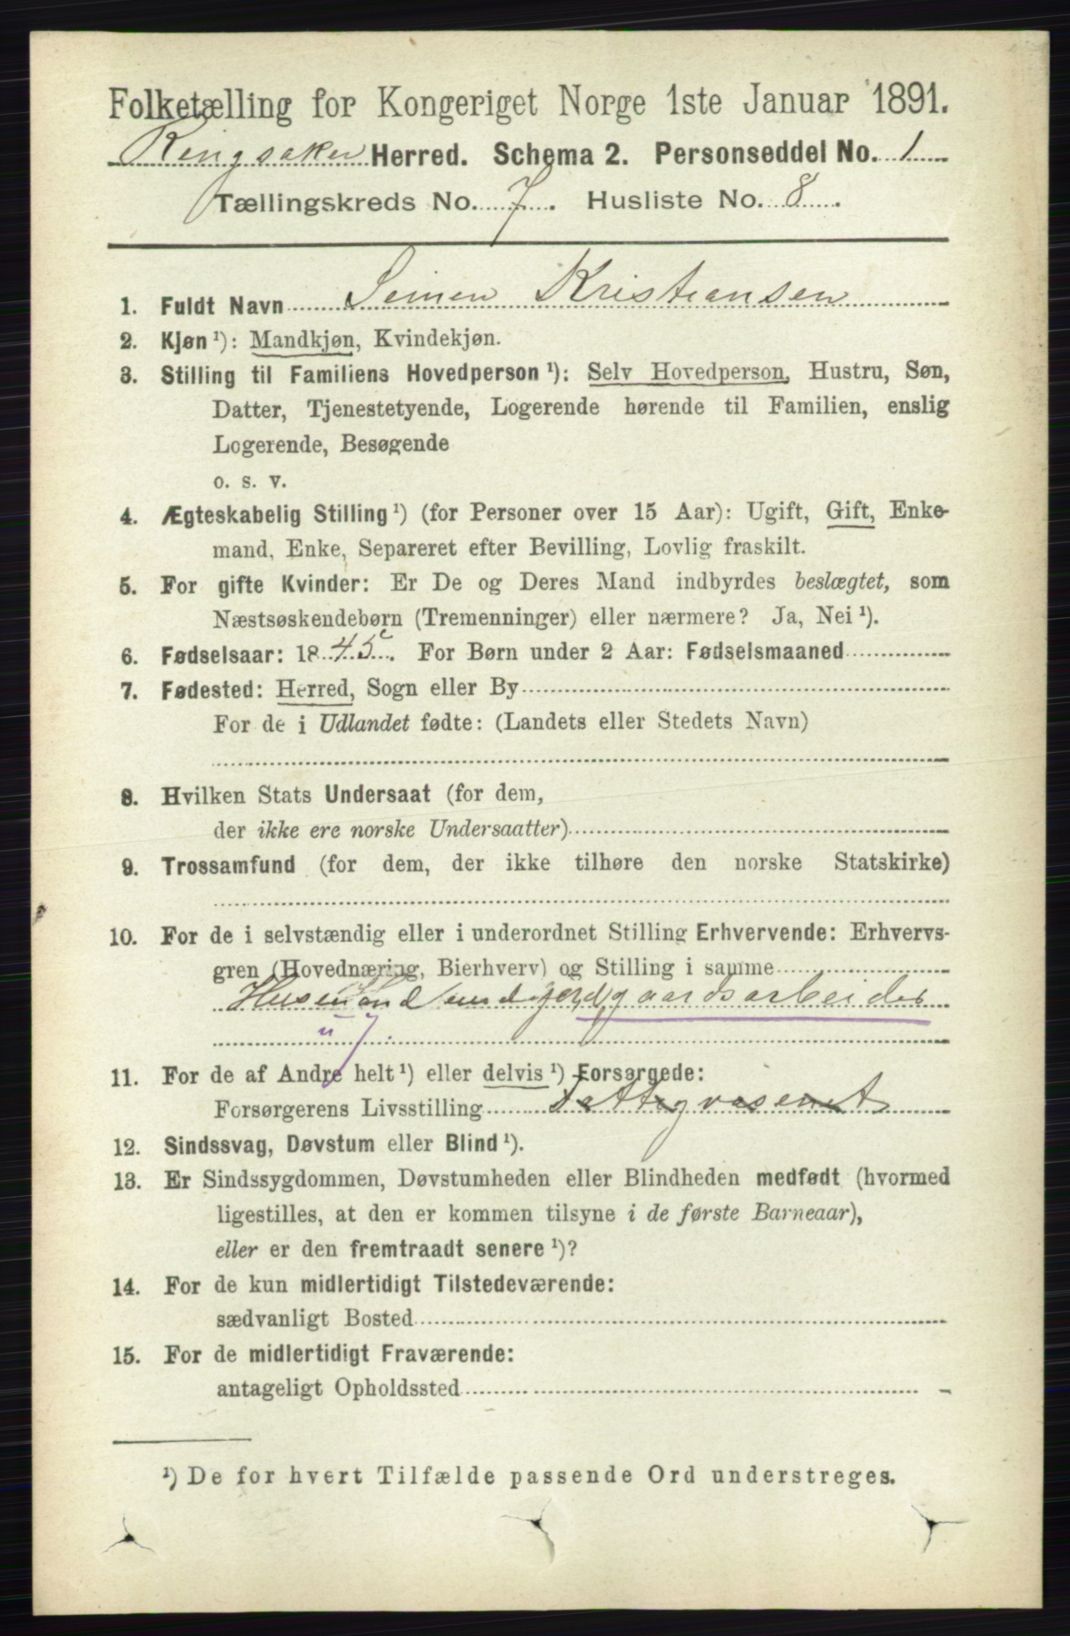 Folketælling for Kongeriget Norge 1ste Januar 1891.
Ringsaker Herred. Schema 2. Personseddel No. 1
Tællingskreds No. 7. Husliste No. 8.
1. Fuldt Navn Simen Kristiansen
2. Kjøn ¹): Mandkjøn, Kvindekjøn.
3. Stilling til Familiens Hovedperson ¹): Selv Hovedperson, Hustru, Søn,
Datter, Tjenestetyende, Logerende hørende til Familien, enslig
Logerende, Besøgende
o. s. v.
4. Ægteskabelig Stilling ¹) (for Personer over 15 Aar): Ugift, Gift, Enke-
mand, Enke, Separeret efter Bevilling, Lovlig fraskilt.
5. For gifte Kvinder: Er De og Deres Mand indbyrdes beslægtet, som
Næstsøskendebørn (Tremenninger) eller nærmere? Ja, Nei ¹).
6. Fødselsaar: 1845. For Børn under 2 Aar: Fødselsmaaned
7. Fødested: Herred, Sogn eller By
For de i Udlandet fødte: (Landets eller Stedets Navn)
8. Hvilken Stats Undersaat (for dem,
der ikke ere norske Undersaatter)
9. Trossamfund (for dem, der ikke tilhøre den norske Statskirke)
10. For de i selvstændig eller i underordnet Stilling Erhvervende: Erhvervs-
gren (Hovednæring, Bierhverv) og Stilling i samme
Husmand gaardsarbeider
11. For de af Andre helt ¹) eller delvis ¹) Forsørgede:
Forsørgerens Livsstilling Fattigvæsenet
12. Sindssvag, Døvstum eller Blind ¹).
13. Er Sindssygdommen, Døvstumheden eller Blindheden medfødt (hvormed
ligestilles, at den er kommen tilsyne i de første Barneaar),
eller er den fremtraadt senere ¹)?
14. For de kun midlertidigt Tilstedeværende:
sædvanligt Bosted
15. For de midlertidigt Fraværende:
antageligt Opholdssted
¹) De for hvert Tilfælde passende Ord understreges.